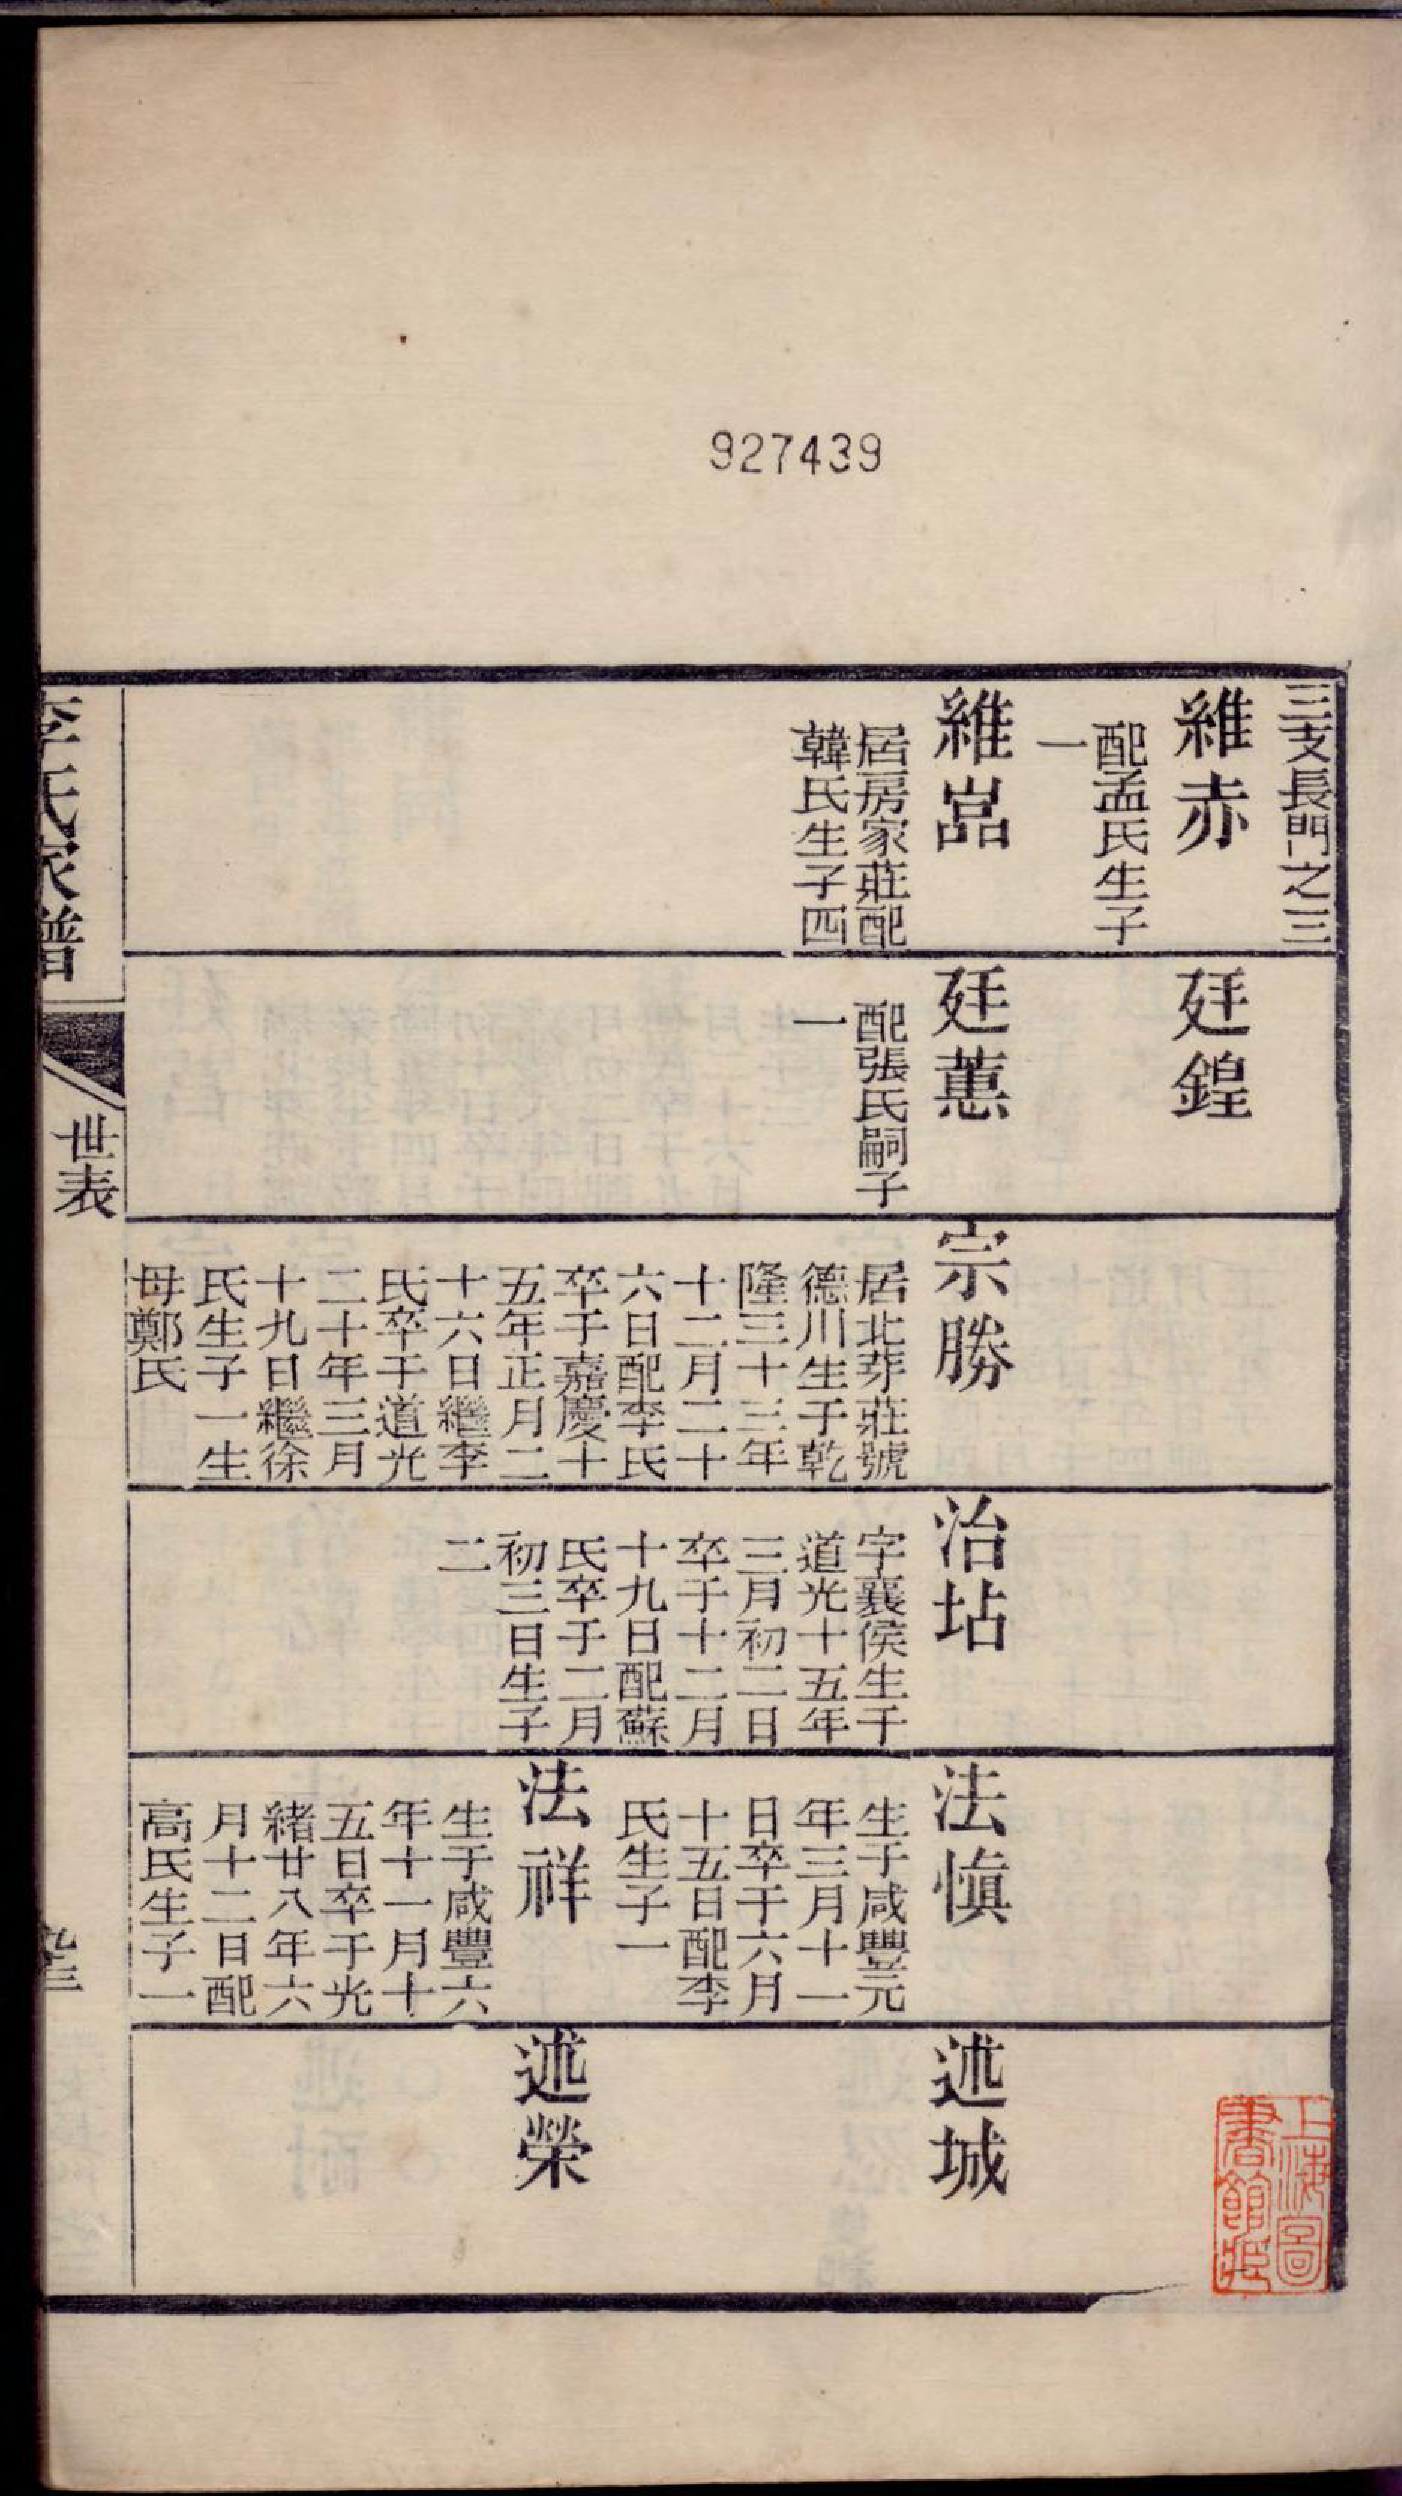 927439
三支長門之三
維赤
配孟氏生子
一
維嵓
居房家莊配
韓氏生子四
廷鍠
廷蕙
配張氏嗣子
一
宗勝
居北莽莊號
德川生于乾
隆三十三年
十二月二十
六日配李氏
卒于嘉慶十
五年正月二
十六日繼李
氏卒于道光
二十年三月
十九日繼徐
氏生子一生
母鄭氏
治坫
字襄侯生于
道光十五年
三月初二日
卒于十二月
十九日配蘇
氏卒于二月
初三日生子
二
法愼
生于咸豐元
年三月十一
日卒于六月
十五日配李
氏生子一
法祥
生于咸豐六
年十一月十
五日卒于光
緒廿八年六
月十二日配
高氏生子一
述城
述榮
李氏家譜
世表
上海圖
書館藏